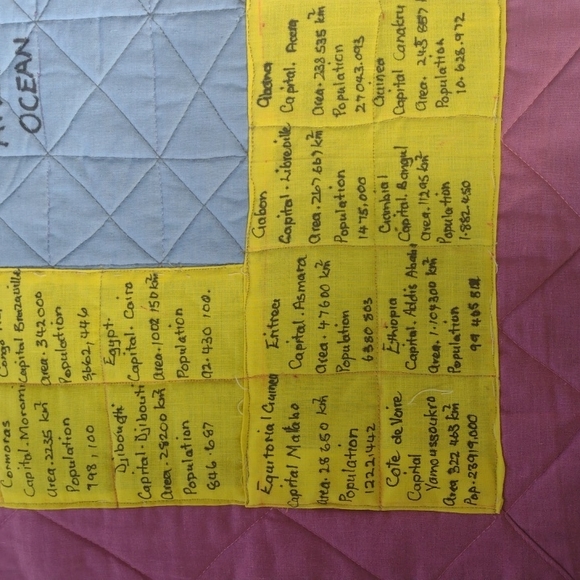 OCEAN
Ghana
Capital. Accra
Area. 238 535 km²
Population
27.043.093
Guinea
Capital Canakry
Area. 245 857 k
Population
10.628.972
Gabon
Capital. Libreville
Area. 267 667 km²
Population
1475,000
Gambia
Capital. Banjul
Area. 11295 km²
Population
1.882.450
Eritrea
Capital. Asmara
Area. 47600 km²
Population
6380 803
Ethiopia
Capital. Addis Ababa
Area. 1.104300 km²
Population
99 465 812
Equitorial Guinea
Capital Malabo
Area. 28 650 km²
Population
1222,442
Cote de Voire
Capital
Yamoussoukro
Area 322 463 km²
Pop. 23919.000
Capital Brazzaville
Area. 342000
Population
3662,446
Egypt.
Capital. Cairo
Area. 1002 150 km²
Population
92.430.100.
Comoros
Capital. Moroni
Area. 2235 km²
Population
798,100
Djibouti
Capital. Djibouti
Area. 23200 km²
Population
846.687